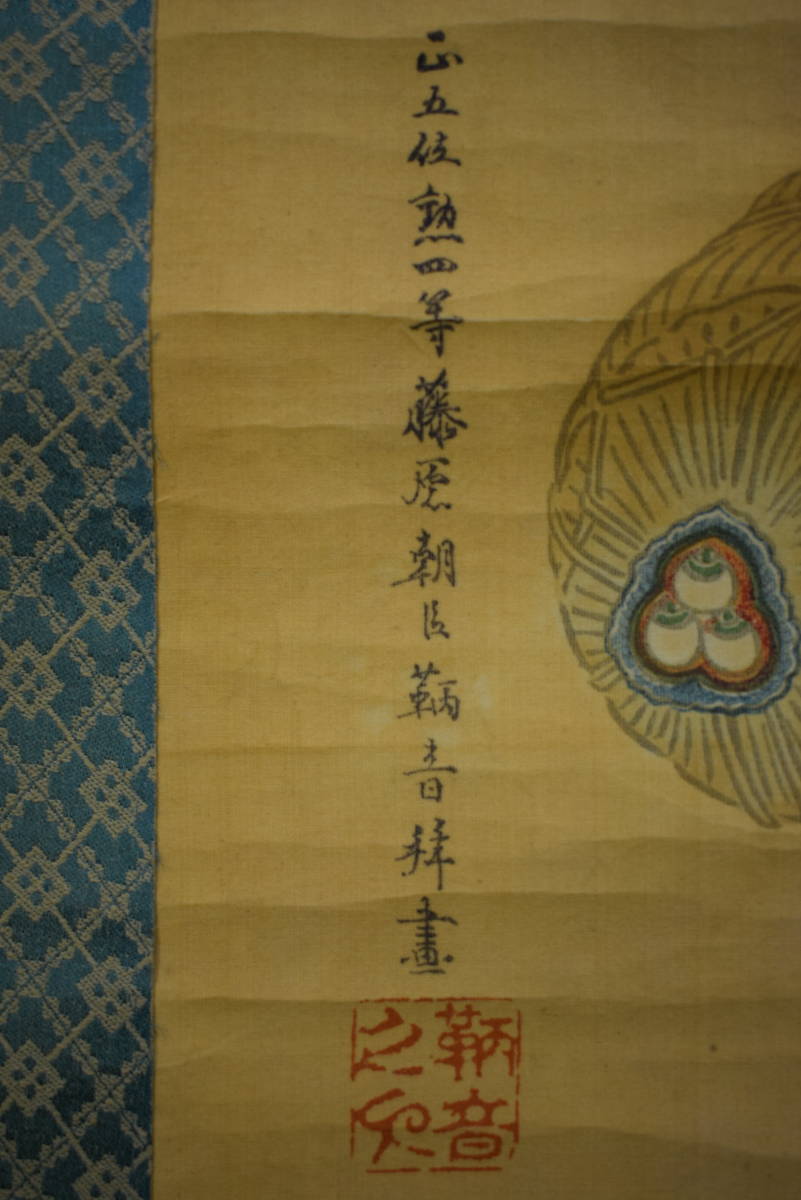 正五位勲四等藤原朝臣鞆音拝畫
鞆音
之印